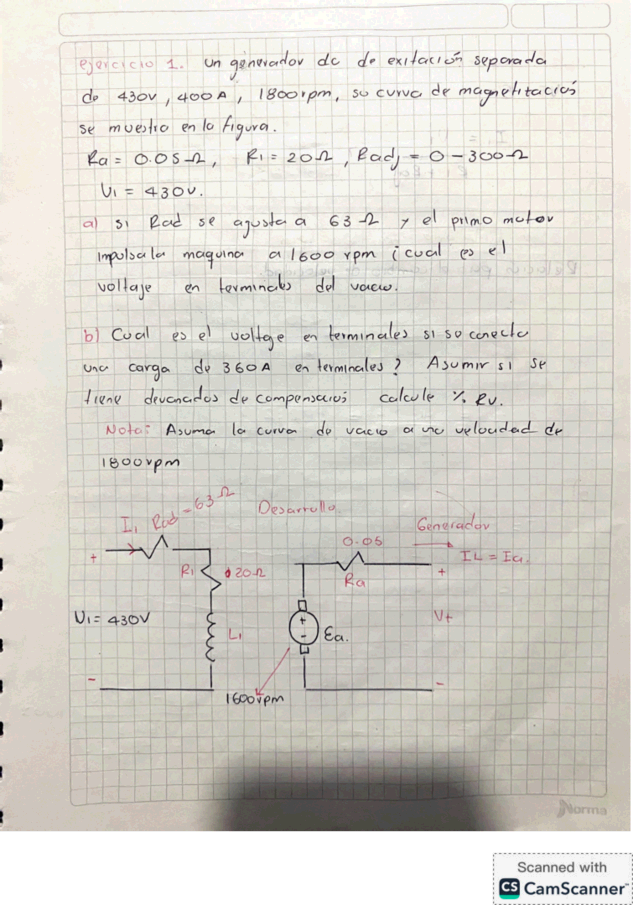 ejercicio 1. un generador dc de exitación separada
de 430v, 400A, 1800rpm, su curva de magnetitacioś
se muestra en la figura.
Ra = 0.05Ω, R1 = 20Ω, Radj = 0-300Ω
U1 = 430v.
a) si Rad se agusta a 63Ω y el primo motor
impulsa la maquina a 1600 rpm ¡cual es el
voltaje en terminales del vacio.
b) Cual es el voltge en terminales si se conecta
una carga de 360A en terminales? Asumir si se
tiene devanados de compensacioś calcule % RV.
Nota: Asuma la curva de vacio a una velocidad de
1800rpm
Desarrollo
I1 Rad = 63Ω
Generador
0.05
IL = Ia.
+
R1 20Ω
Ra
+
U1 = 430V
L1
+
-
Ea.
Vt
-
-
1600rpm
Norma
Scanned with
CS CamScanner